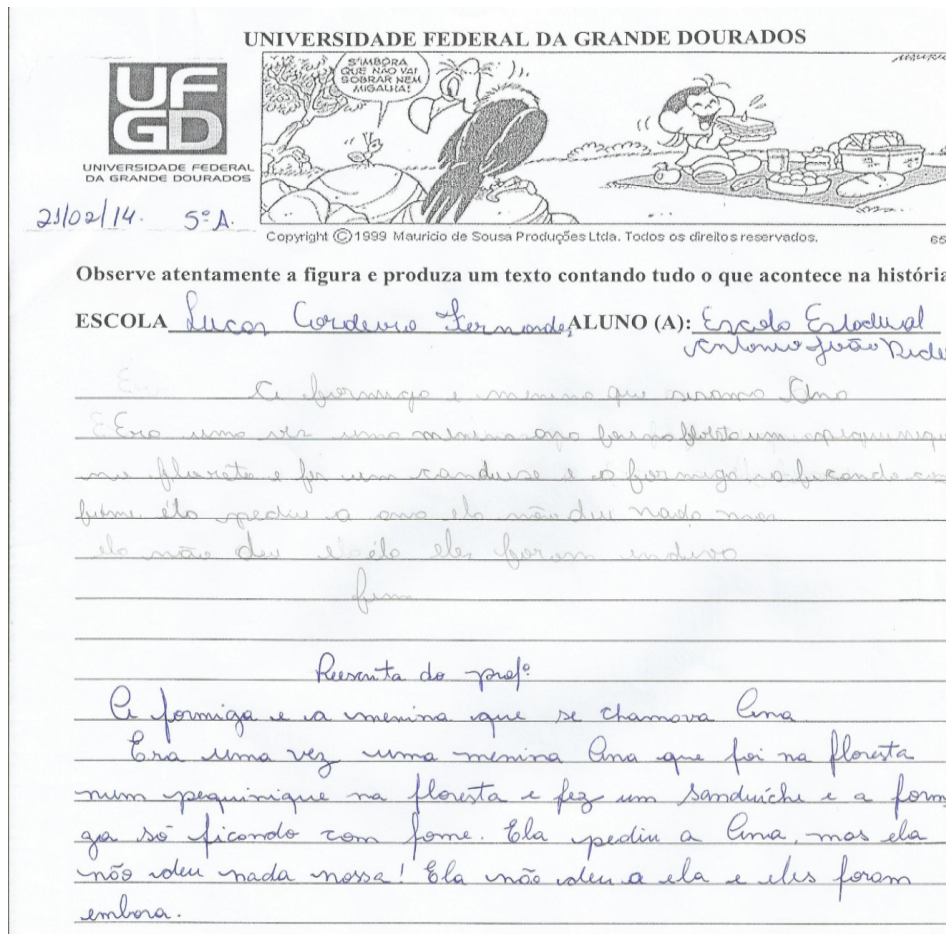 UNIVERSIDADE FEDERAL DA GRANDE DOURADOS
UFGD
UNIVERSIDADE FEDERAL
DA GRANDE DOURADOS
S'IMBORA
QUE NÃO VAI
SOBRAR NEM
MIGALHA!
21/02/14. 5º A.
Copyright ©1999 Mauricio de Sousa Produções Ltda. Todos os direitos reservados. 65
Observe atentamente a figura e produza um texto contando tudo o que acontece na história
ESCOLA Lucas Cordeiro Fernandes ALUNO (A): Escola Estadual
Antonio João
A formiga e menina que Ana
Era uma vez uma menina ana um
na e fez um e a formiga com
fome éla pediu a ana ela não deu nada
ela não deu eles foram
fim
Reescrita do profº
A formiga e a menina que se chamava Ana
Era uma vez uma menina Ana que foi na floresta
num pequinique na floresta e fez um sanduíche e a formi
ga só ficando com fome. Ela pediu a Ana, mas ela
não deu nada nossa! Ela não deu a ela e eles foram
embora.